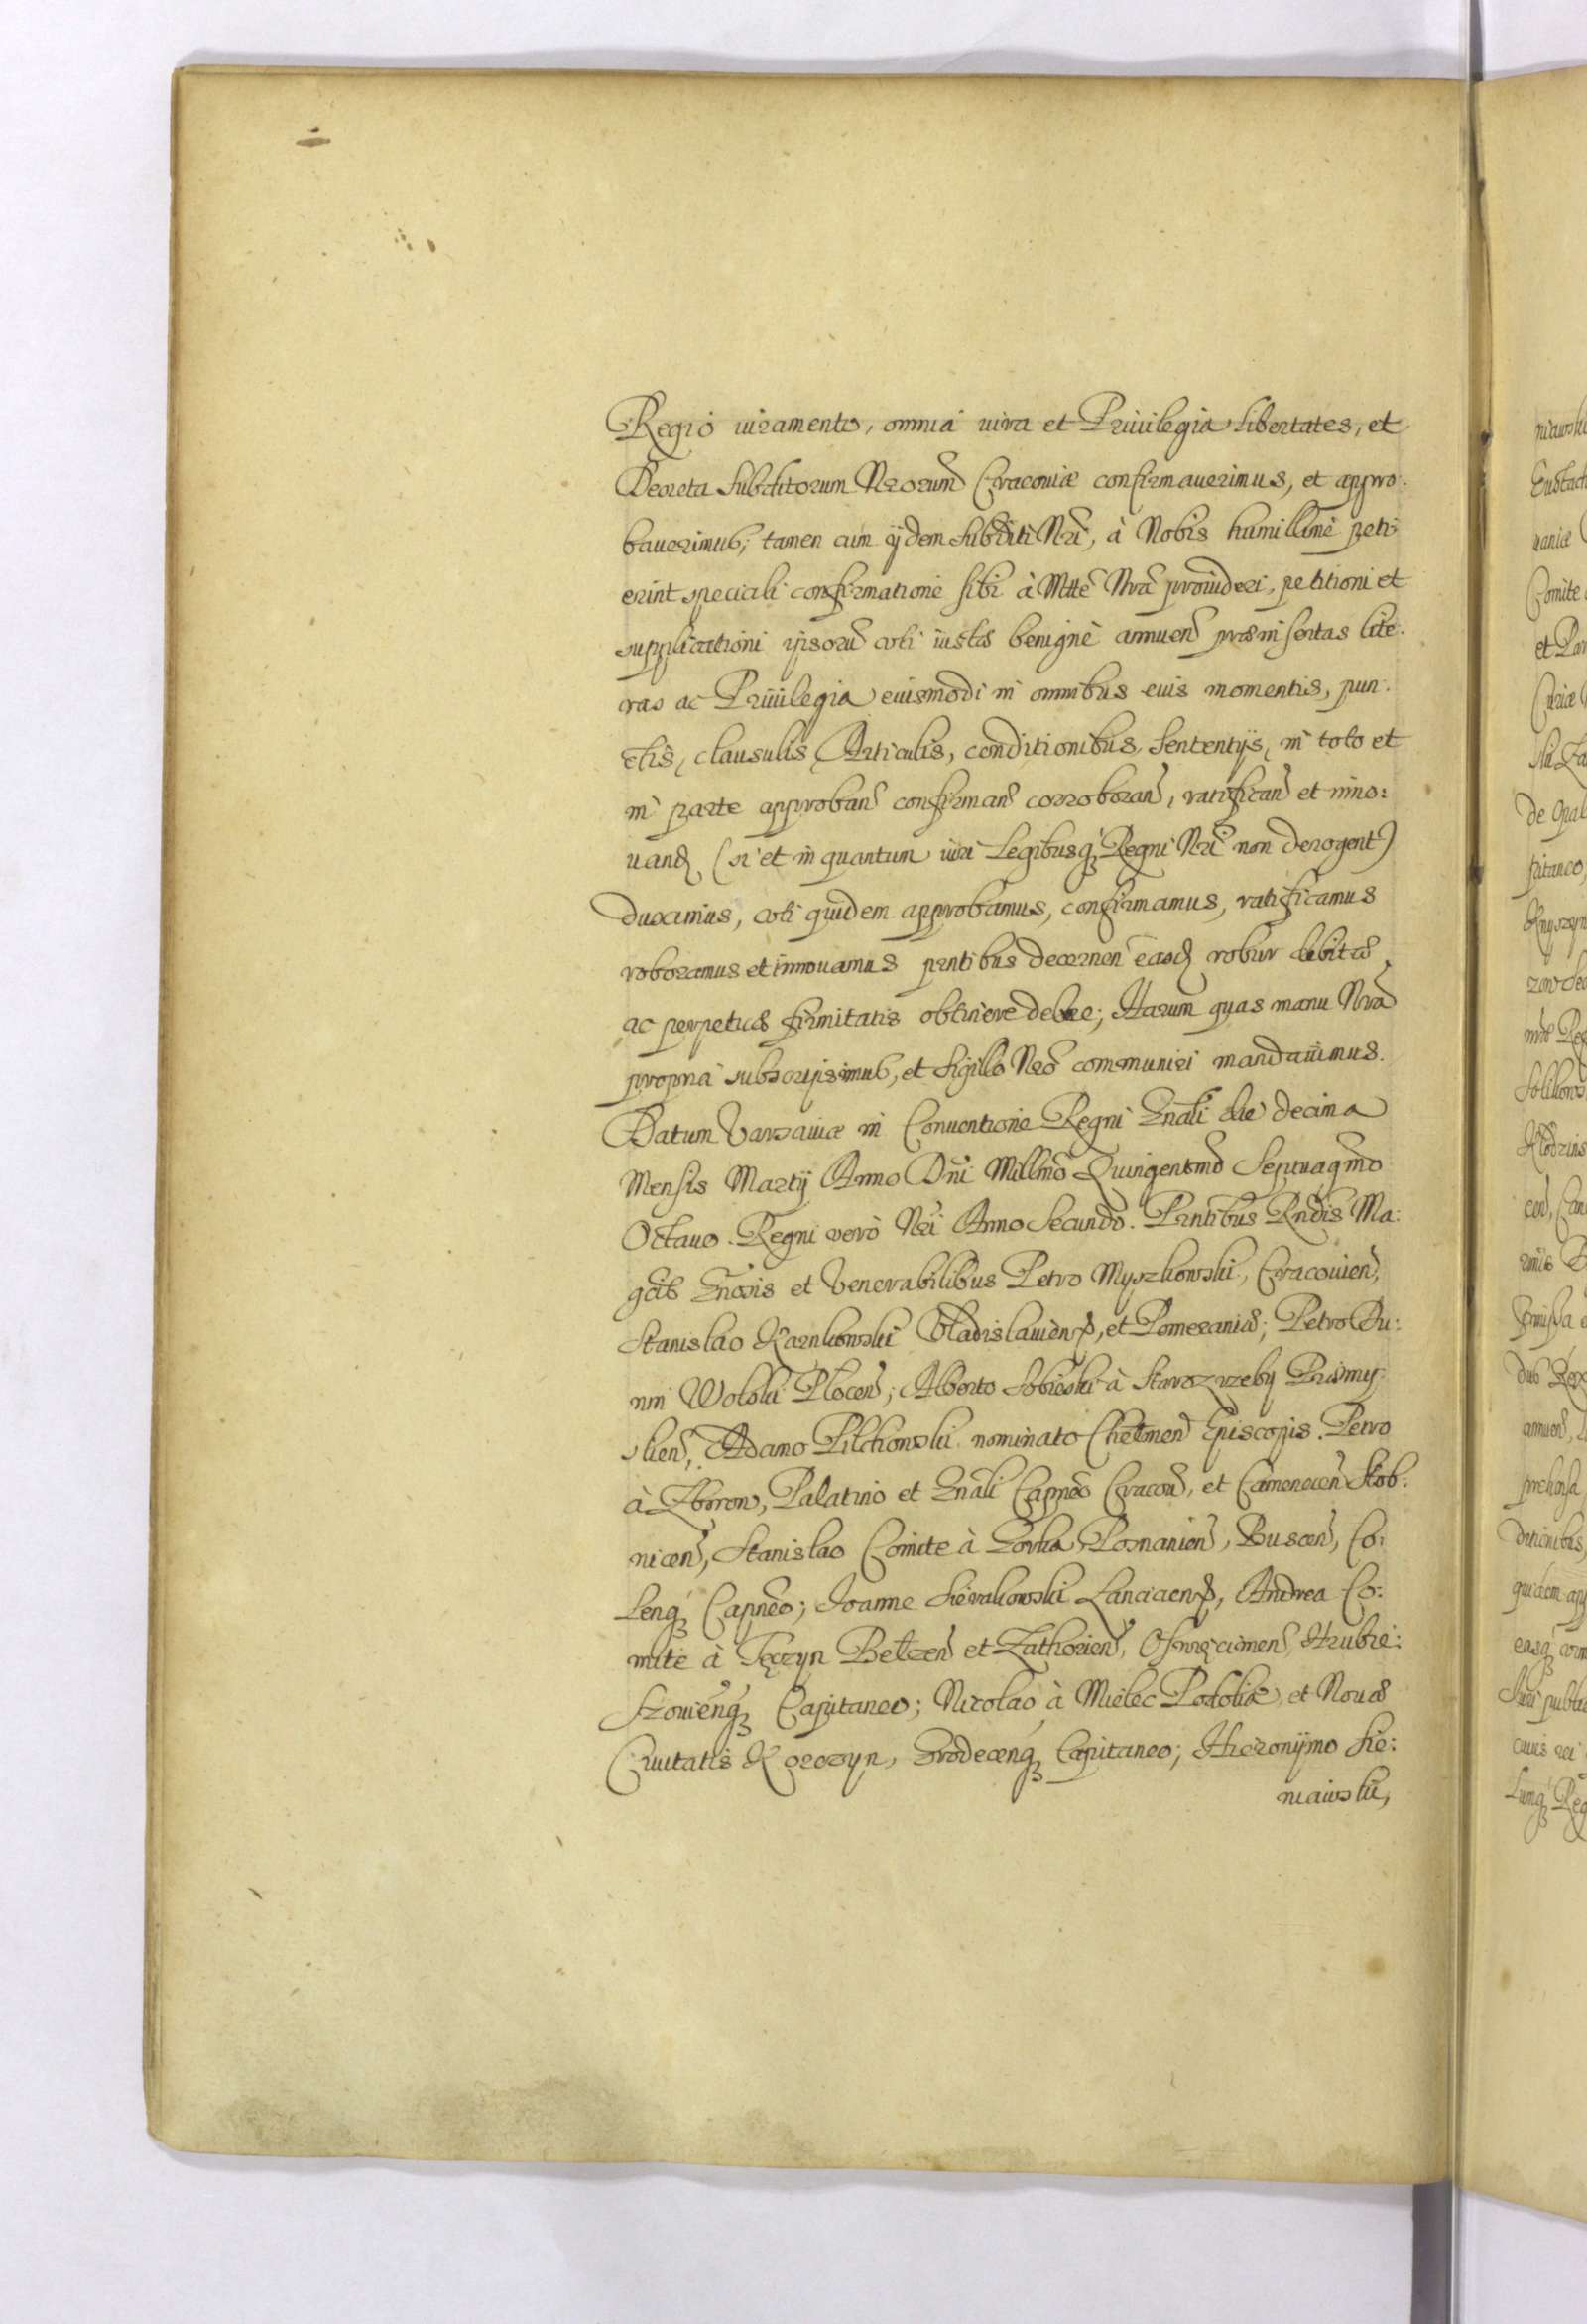 Regio iuramento, omnia iura et Priuilegia Libertates, et
Decreta Subditorum Nrorum Cracouiæ confirmauerimus, et appro-
bauerimus; tamen cum ijdem Subditi Nri, à Nobis humillime peti-
erint speciali confirmatione sibi à Mtte Nra prouideri, petitioni et
supplicationi ipsoru uti iustæ benignè annuen præinsertas lite-
ras ac Priuilegia eiusmodi in omnibus eius momentis, pun-
ctis, clausulis, Articulis, conditionibus, Sententijs, in toto et
in parte approban confirman corroboran, ratifican et inno:
uand (si et in quantum iuri Legibusq Regni Nri non derogent)
duximus, uti quidem approbamus, confirmamus, ratificamus
roboramus et innouamus pntibus decernen easq robur debitæ
ac perpetuæ firmitatis obtinere debere; Harum quas manu Nra
propria subscripsimus, et Sigillo Nro communiri mandauimus.
Datum Varsauiæ in Conuentione Regni Gnali die decima
Mensis Martij Anno Dni Millmo Quingentmo Septuagmo
Octauo. Regni verò Nri Anno Secundo. Pntibus Rndis Ma:
gcis Gnosis et Venerabilibus Petro Myszkowski, Cracouien,
Stanislao Karnkowski Vladislauien, et Pomeraniæ; Petro Du:
nin Wolski Plocen; Alberto Sobieski à Starozrzeby Præmy-
slien, Adamo Pilchowski nominato Chełmen Episcopis. Petro
à Zborow, Palatino et Gnali Capneo Cracou, et Camenecen Stob:
nicen, Stanislao Comite à Gorka Posnanien, Buscen, Co:
lenq Capneo; Joanne Sierakowski Lancicien, Andrea Co:
mite à Tęczyn Bełzen et Zathorien, Oswięcimen Hrubie:
szouienq Capitaneo; Nicolao à Mielec Podoliæ et Nouæ
Ciuitatis Korczyn, Grodecenq Capitaneo; Hieronijmo Sie:
niawski,